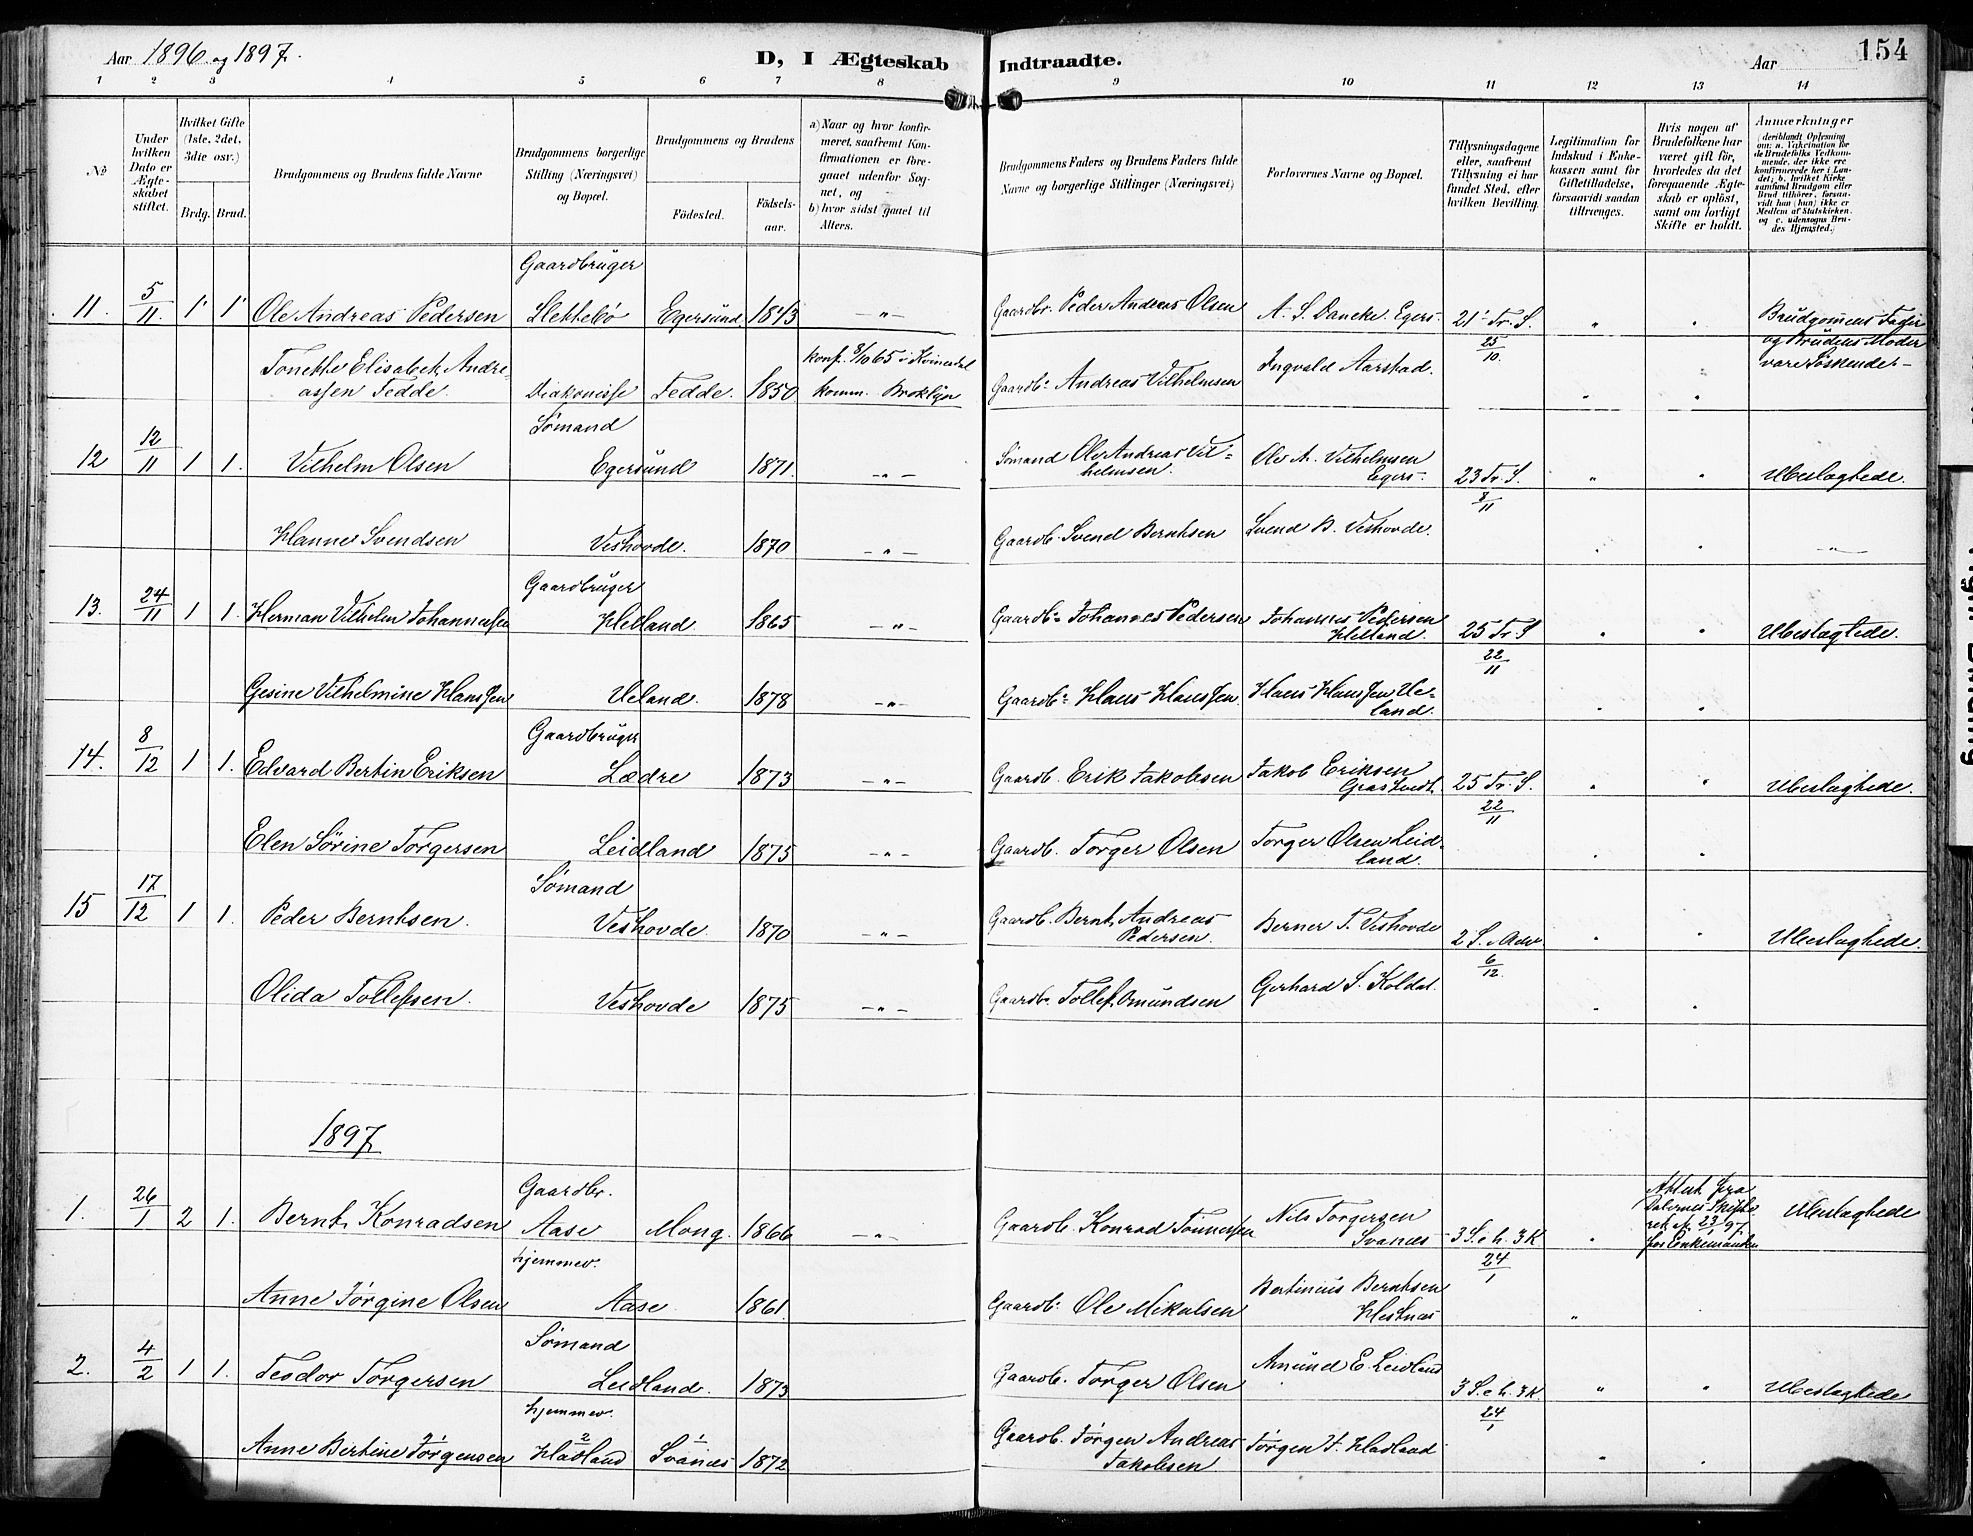 Aar 1896 og 1897.
D, I Ægteskab Indtraadte.
Aar
154
1 2 3 4 5 6 7 8 9 10 11 12 13 14
№
Under hvilken Dato er Ægteskabet stiftet.
Hvilket Gifte (1ste, 2det, 3die osv.)
Brdg. Brud.
Brudgommens og Brudens fulde Navne
Brudgommens borgerlige Stilling (Næringsvei) og Bopæl.
Brudgommens og Brudens
Fødested.
Fødselsaar.
a) Naar og hvor konfirmeret, saafremt Konfirmationen er foregaaet udenfor Sognet, og
b) hvor sidst gaaet til Alters.
Brudgommens Faders og Brudens Faders fulde Navne og borgerlige Stillinger (Næringsvei)
Forlovernes Navne og Bopæl.
Tillysningsdagene eller, saafremt Tillysning ei har fundet Sted, efter hvilken Bevilling.
Legitimation for Indskud i Enkekassen samt for Giftetilladelse, forsaavidt saadan tiltrænges.
Hvis nogen af Brudefolkene har været gift før, hvorledes da det foregaaende Ægteskab er opløst, samt om lovligt Skifte er holdt.
Anmærkninger
(deriblandt Oplysning om: a. Vakcination for de Brudefolks Vedkommende, der ikke ere konfirmerede her i Landet; b. hvilket Kirkesamfund Brudgom eller Brud tilhører, forsaavidt han (hun) ikke er Medlem af Statskirken, og c. udensogns Brudes Hjemsted.)
Gaardbruger
11. 5/11. 1 1 Ole Andreas Pedersen Slettebø Egersund 1843 — " — Gaardbr. Peder Andreas Olsen A. S. Daneke. Egers- 21' Tr. S. 25/10. " " Brudgomens Fader og Brudens Moder vare Søskende. —
Tonette Elisabet Andreassen Fedde. Diakonisse Fedde. 1850 konf. 8/10 65 i Kvinesdal komm. Broklyn Gaardb: Andreas Vilhelmsen Ingvald Aarstad. " "
Sømand
12 12/11 1 1. Vilhelm Olsen Egersund 1871. — " — Sømand Ole Andreas Vilhelmsen. Ole A. Vilhelmsen Egers-. 23 Tr. S. 8/11 " " Ubeslægtede.
Hanne Svendsen Veshovde. 1870 — " — Gaardb. Svend Berntsen Svend B. Veshovde. " " — " —
Gaardbruger
13. 24/11 1 1. Herman Vilhelm Johannessen Helland 1865 — " — Gaardb: Johannes Pedersen Johannes Pedersen Helland. 25 Tr. S 22/11 " " Ubeslægtede.
Gesine Vilhelmine Hanssen Ueland. 1878 — " — Gaardb: Hans Hanssen Hans Hanssen Ueland. " "
Gaardbruger
14. 8/12 1 1. Edvard Bertin Eriksen Lædre 1873 — " — Gaardb. Erik Jakobsen Jakob Eriksen 25 Tr. S. 22/11 " " Ubeslægtede.
Elen Sørine Torgersen Leidland 1875 — " — Gaardb. Torger Olsen Torger Olsen Leidland. " "
Sømand
15 17/12 1 1. Peder Berntsen. Veshovde. 1870 — " — Gaardb. Bernt Andreas Pedersen. Berner T. Veshovde 2 S. i Adv. 6/12. " " Ubeslægtede.
Olida Tollefsen. Veshovde 1875 — " — Gaardb: Tollef Omundsen Gerhard S. Koldal. " "
1897
Gaardbr.
1. 26/1 2 1. Bernt Konradsen Aase Mong. 1866 — " — Gaardb. Konrad Tønnessen Nils Torgersen Svanes 3 S. e. h. 3 K 24/1 " Attest fra Dalernes Skifteret af 23/1 97 for Enkemanden Ubeslægtede
hjemmev.
Anne Jørgine Olsen Aase. 1861. Gaardb: Ole Mikalsen Bertinius Berntsen Hestnes "
Sømand
2. 4/2 1 1. Teodor Torgersen Leidland. 1873 Gaardb. Torger Olsen Amund E. Leidland 3 S. e. h. 3 K 24/1 " " Ubeslægtede
hjemmev.
Anne Bertine Jørgensen 2 Hadland 1 Svanes 1872 Gaardb. Jørgen Andreas Jakobsen Jørgen J. Hadland " "